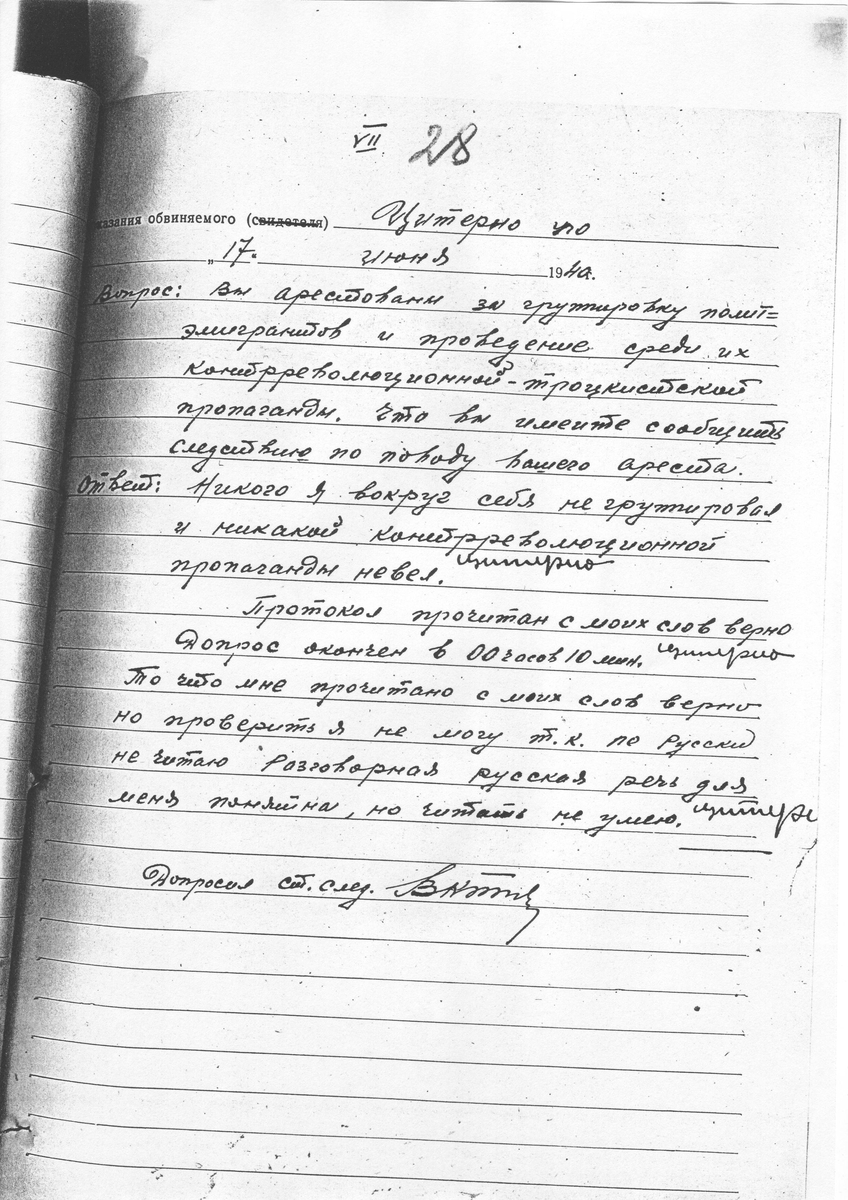 VII 28
казания обвиняемого (свидетеля) Цитерно по
„ 17 " июня 194 г.
Вопрос: Вы арестованы за группировку полит=
эмигрантов и проведение среди их
контрреволюционной-троцкистской
пропаганды. Что вы имеите сообщить
следствию по поводу вашего ареста.
Ответ: Никого я вокруг себя не группировал
и никакой контрреволюционной
пропаганды невел.
Протокол прочитан с моих слов верно
Допрос окончен в 00 часов 10 мин.
То что мне прочитано с моих слов верно
но проверить я не могу т.к. по Русски
не читаю Разговорная русская речь для
меня понятна, но читать не умею.
Допросил ст. след.